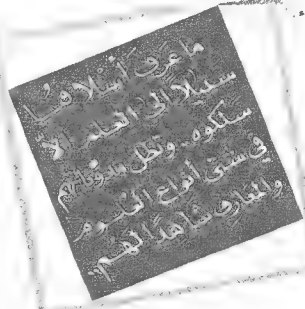 ما عرف أسلافنا
سبيلا إلى العلم إلا
سلكوه.. وتظل مؤلفاتهم
في شتى أنواع العلوم
والمعارف شاهدا لهم..